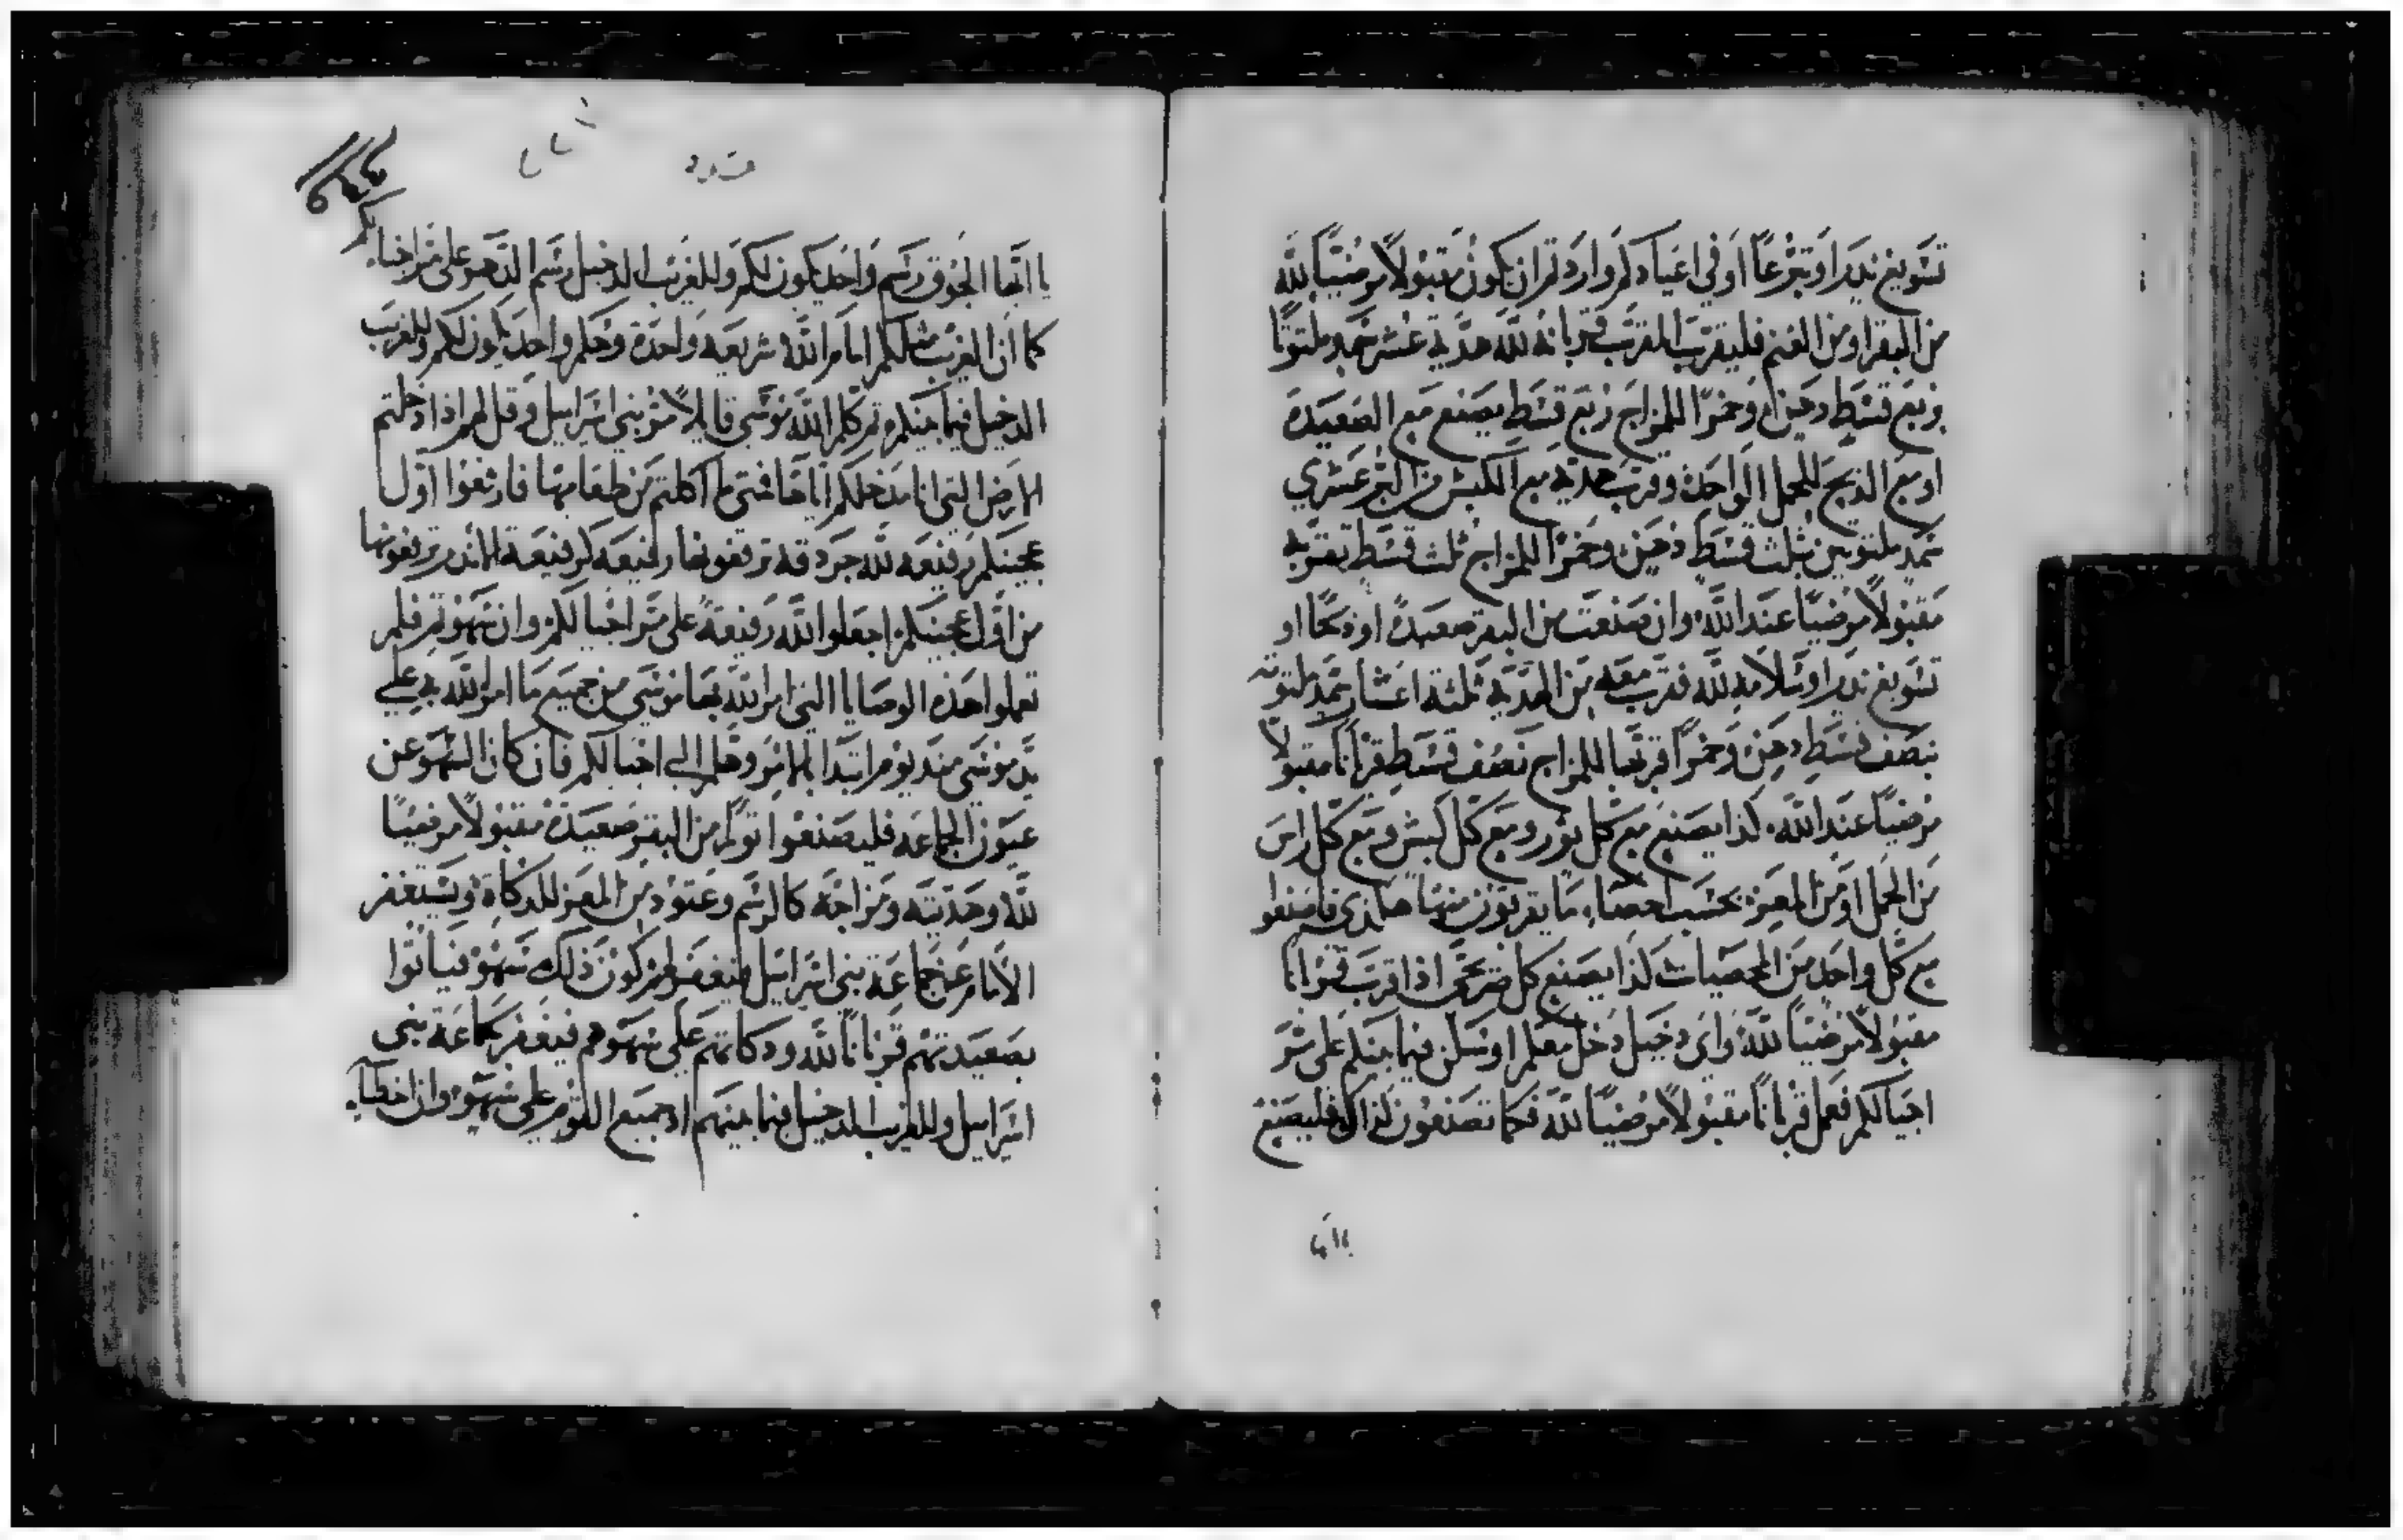 تسويغ ندرا او تبرعا او في اعيادكم واردتم ان يكون مقبولا مرضيا لله
من البقر او من الغنم فليقرب المقرب قربانه لله هدية عشر سمد ملتوتا
بربع قسط دهن وخمرا للمزاج ربع قسط يصنع مع الصعيدة
او مع الذبح للحمل الواحد وقرب هدية مع الكبش من البر عشري
سمد ملتوتين بثلث قسط دهن وخمرا للمزاج ثلث قسط يقربه
مقبولا مرضيا عند الله وان صنعت من البقر صعيدة او ذبحا او
تسويغ ندرا او سلامة لله فقرب معه من الهدية ثلثة اعشار سمد ملتوته
بنصف قسط دهن وخمرا قربها للمزاج نصف قسط قربانا مقبولا
مرضيا عند الله كذا يصنع مع كل ثور ومع كل كبش ومع كل راس
من الحمل او من المعز بحسب احصاء ما يقربون منها هكذى فاصنعو
مع كل واحد من المحصيات كذا يصنع كل صريح اذا قرب قربانا
مقبولا مرضيا لله واى دخيل دخل معكم او سكن فيما بينكم على مر
اجيالكم فعمل قربانا مقبولا مرضيا لله فكما تصنعون كذاك فليصنع
يا ايها الجوق رسم واحد يكون لكم وللغريب الدخيل رسم الدهر على مر اجيالكم
كما ان الغريب مثلكم امام الله شريعه واحدة وحكم واحد يكون لكم وللغريب
الدخيل فيما بينكم ثم كلم الله موسى قايلا مر بني اسراييل وقل لهم اذا دخلتم
الارض التي انا مدخلكم اياها فمتى ما اكلتم من طعامها فارفعوا اول
عجينكم رفيعه لله جردقه ترفعونها رفيعه كرفيعة الاندر ترفعونها
من اول عجينكم اجعلوا لله رفيعة على مر اجيالكم وان سهوتم فلم
تعملوا هذه الوصايا التي امر الله بها موسى من جميع ما امر الله به على
يد موسى منذ يوم ابتدا بالامر وهلم الي اجيالكم فان كان السهو عن
عيون الجماعه فليصنعوا ثورا من البقر صعيدة مقبولا مرضيا
لله وهديته ومزاجه كالرسم وعتود من المعز للدكاة ويستغفر
الامام عن جماعة بني اسراييل فيغفر لهم كون ذلك سهو فياتوا
بصعيدتهم قربانا لله ودكاتهم على سهوهم فيغفر لجماعة بني
اسراييل وللغريب الدخيل فيما بينهم اد جميع القوم على سهو وان اخطا